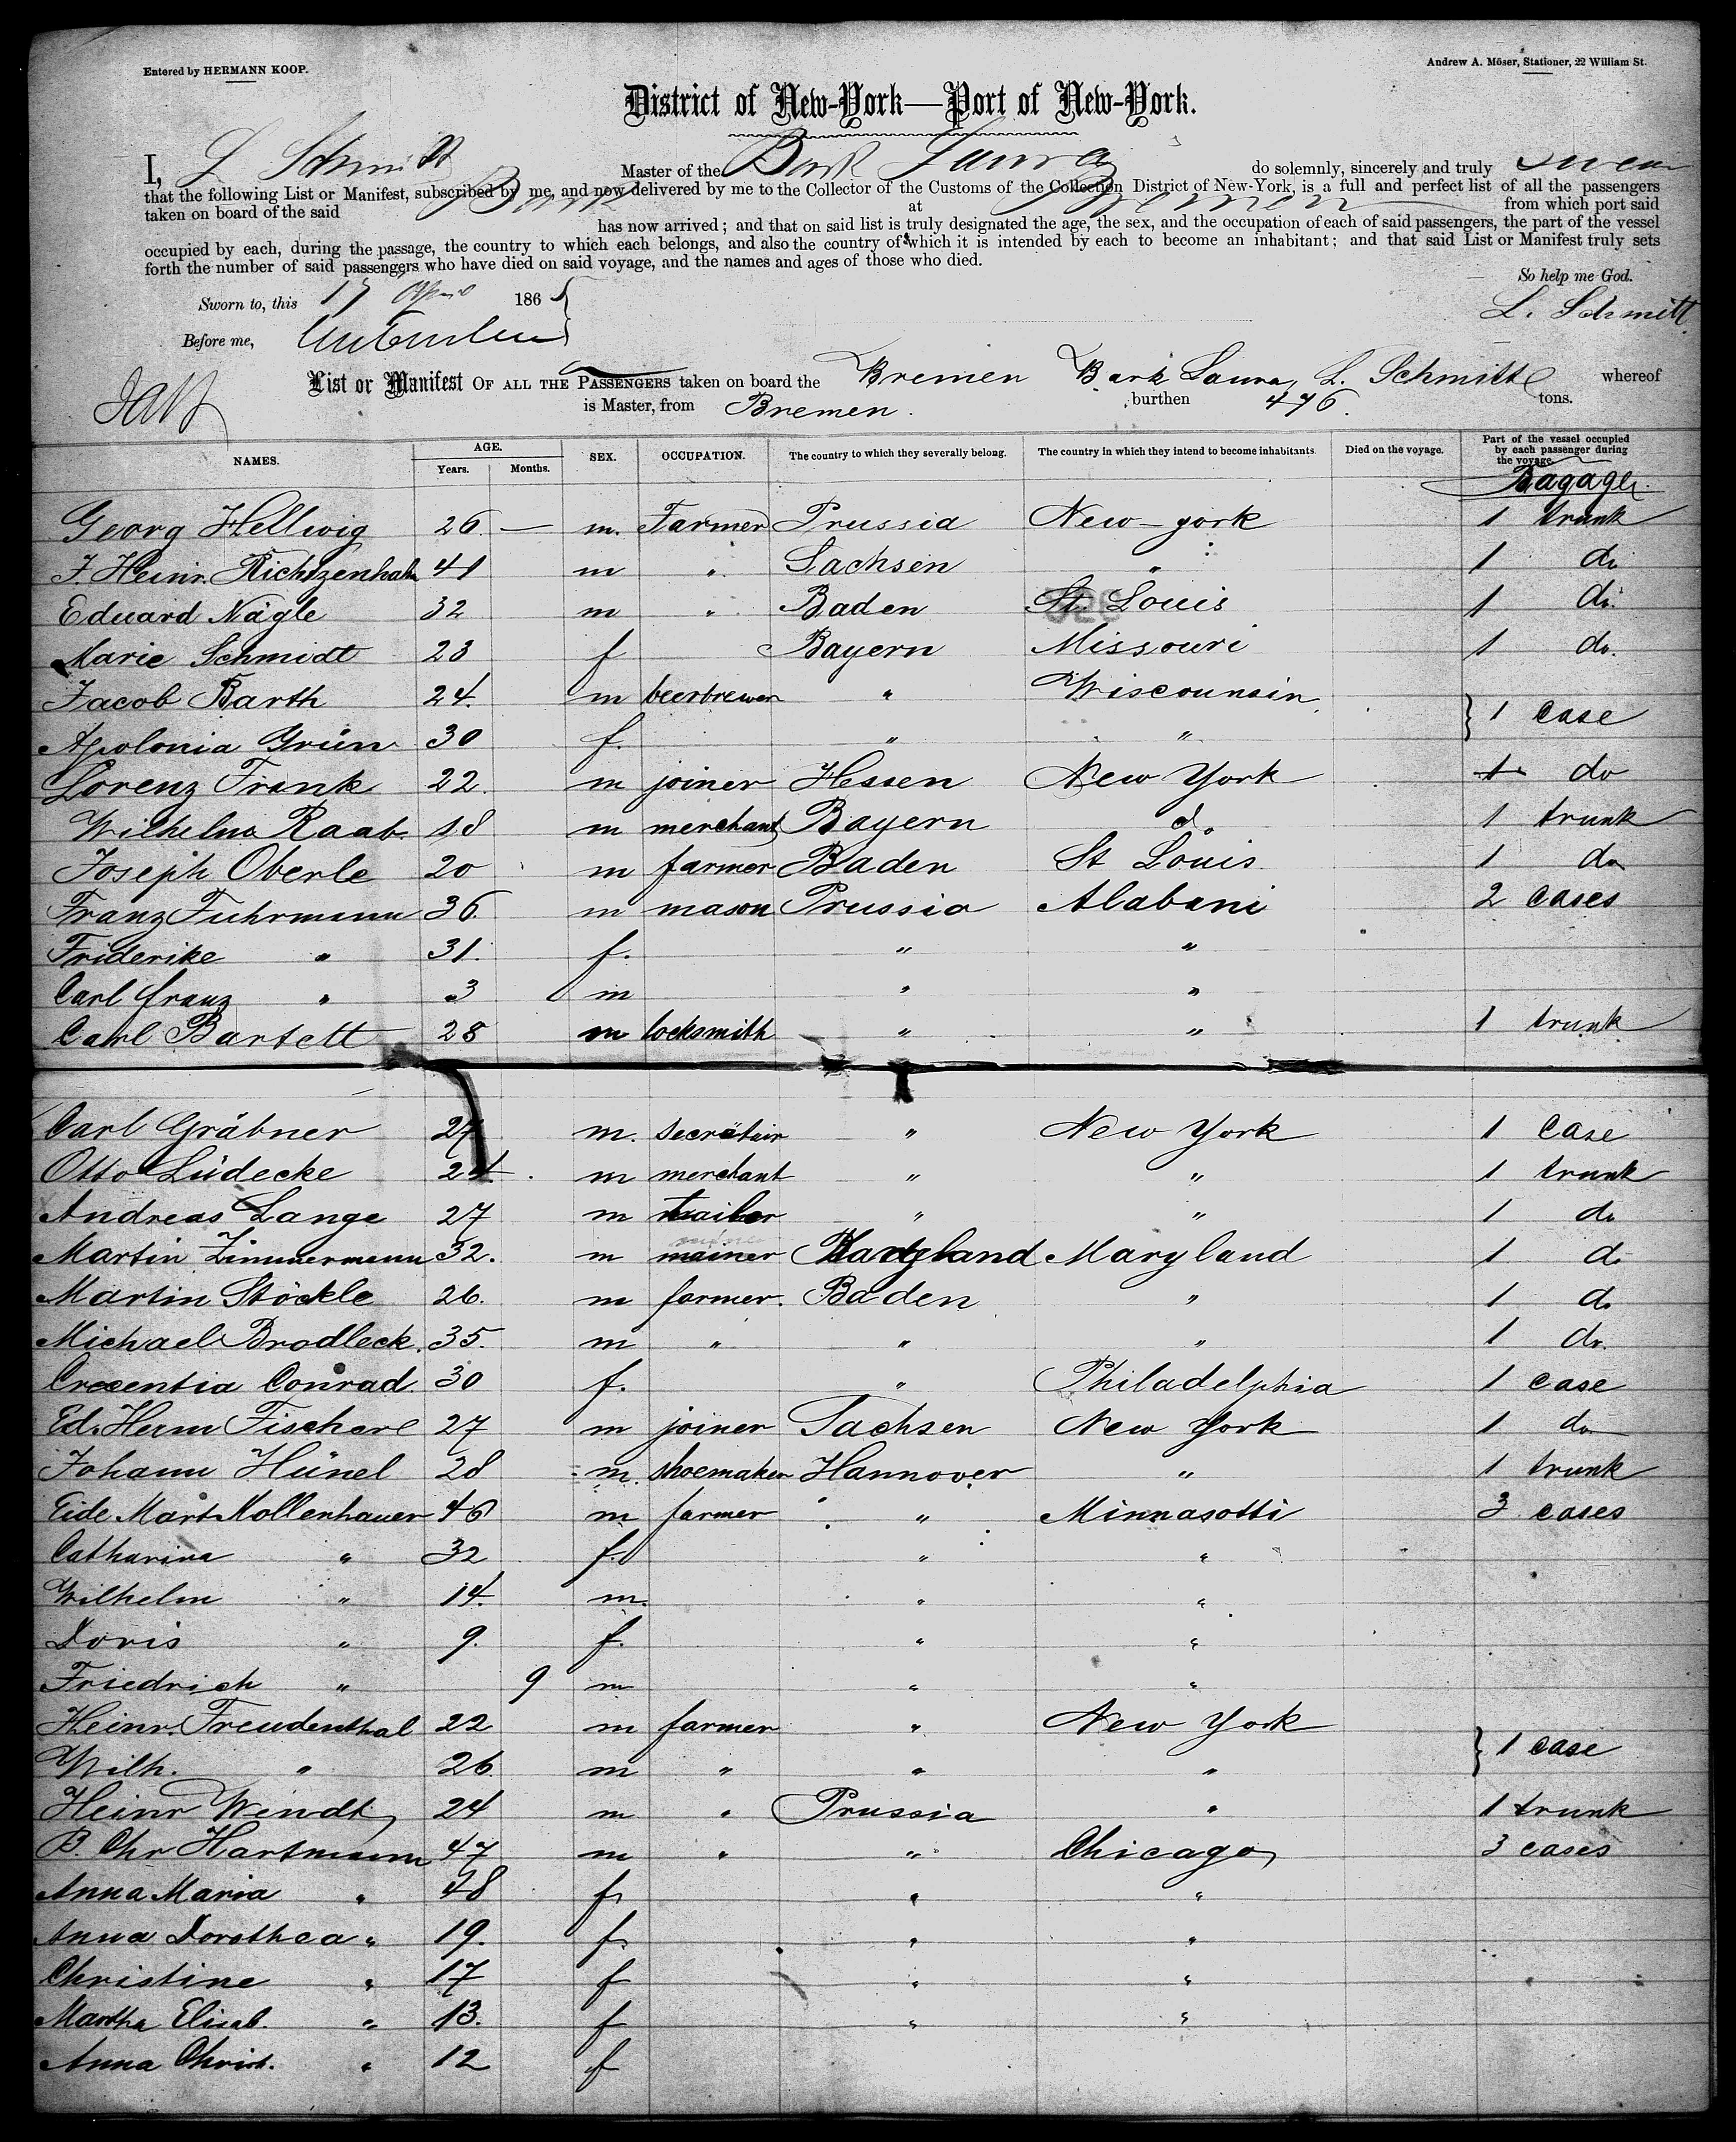 Entered by HERMANN KOOP.
Andrew A. Möser, Stationer, 22 William St.
District of New-York—Port of New-York.
I, L Schmitt Master of the Bark Laura do solemnly, sincerely and truly swear
that the following List or Manifest, subscribed by me, and now delivered by me to the Collector of the Customs of the Collection District of New-York, is a full and perfect list of all the passengers
taken on board of the said Bark at Bremen from which port said
has now arrived; and that on said list is truly designated the age, the sex, and the occupation of each of said passengers, the part of the vessel
occupied by each, during the passage, the country to which each belongs, and also the country of which it is intended by each to become an inhabitant; and that said List or Manifest truly sets
forth the number of said passengers who have died on said voyage, and the names and ages of those who died.
So help me God.
Sworn to, this 17 April 1865
L. Schmitt
Before me,
List or Manifest OF ALL THE PASSENGERS taken on board the Bremen Bark Laura, L. Schmitt whereof
is Master, from Bremen. burthen 476. tons.
NAMES. AGE. Years. Months. SEX. OCCUPATION. The country to which they severally belong. The country in which they intend to become inhabitants. Died on the voyage. Part of the vessel occupied by each passenger during the voyage.
Bagage.
Georg Hellwig 26. — m. Farmer Prussia New-york 1 trunk
J. Heinr. Richtzenhain 41 m " Sachsen " 1 do
Eduard Nägle 32 m " Baden St. Louis 1 do.
Marie Schmidt 23 f Bayern Missouri 1 do.
Jacob Barth 24. m beerbrewer " Wiscounsin
} 1 Case
Apolonia Grün 30 f. " "
Lorenz Frank 22. m joiner Hessen New York 1 do
Wilhelm Raab. 18 m merchant Bayern do 1 trunk
Joseph Oberle 20 m farmer Baden St Louis 1 do
Franz Fuhrmann 36. m mason Prussia Alabani 2 cases
Friderike " 31. f. " "
Carl franz " 3 m " "
Carl Bartelt 28 m locksmith " " 1 trunk
Carl Gräbner 27 m. secretair " New York 1 Case
Otto Lüdecke 24 m merchant " " 1 trunk
Andreas Lange 27 m tailor " " 1 do
Martin Zimmermann 32. m mainer Maryland Maryland 1 do
Martin Stöckle 26. m farmer. Baden " 1 do
Michael Brodleck. 35. m " " " 1 do.
Crecentia Conrad. 30 f. " Philadelphia 1 case
Ed. Herm Fischer 27 m joiner Sachsen New York 1 do
Johann Hünel 28 m. shoemaker Hannover " 1 trunk
Eide Mart Mollenhauer 46 m farmer " Minnasotti 3 cases
Catharina " 32 f. " "
Wilhelm " 14. m. " "
Doris " 9. f. " "
Friedrich " 9 m " "
Heinr. Freudenthal 22 m farmer " New York
} 1 case
Wilh. " 26 m " " "
Heinr Wendt 24 m " Prussia " 1 trunk
B. Chr Hartmann 47 m " " Chicago 3 cases
Anna Maria " 48 f " "
Anna Dorothea " 19. f. " "
Christine " 17 f " "
Martha Elisab. " 13. f " "
Anna Christ. " 12 f